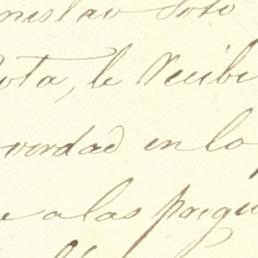 nislao Soto
ota, le recibi
verdad en lo
e a las pregu